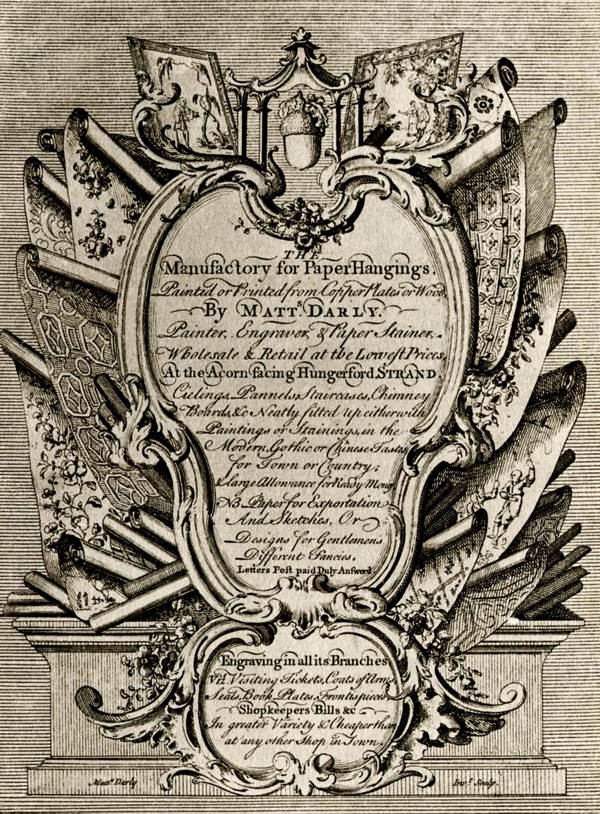 THE
Manufactory for Paper Hangings,
Painted or Printed from Copper Plates or Wood,
By MATT. DARLY.
Painter, Engraver, & Paper Stainer,
Wholesale & Retail at the Lowest Prices,
At the Acorn facing Hungerford, STRAND
Cielings, Pannels, Staircases, Chimney
Boards, &c Neatly fitted up either with
Paintings or Stainings, in the
Modern, Gothic or Chinese Tastes
for Town or Country,
& large Allowance for Ready Money
NB Paper for Exportation
And Sketches, Or
Designs for Gentlemens
Different Fancies,
Letters Post paid Duly Answerd
Engraving in all its Branches
Vizt Visiting Tickets, Coats of Arms,
Seals, Book Plates, Frontispieces,
Shopkeepers Bills &c
In greater Variety & Cheaper than
at any other Shop in Town.
Mattw Darly
Invt Sculp.